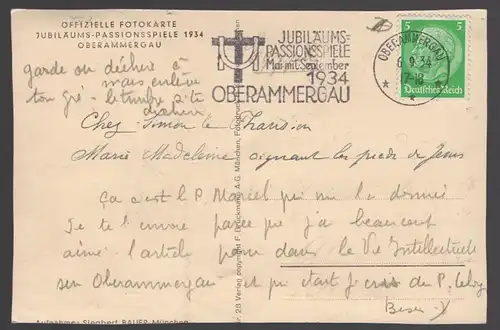 OFFIZIELLE FOTOKARTE
JUBILÄUMS-PASSIONSSPIELE 1934
OBERAMMERGAU
JUBILÄUMS-
PASSIONSSPIELE
Mai mit September
1934
OBERAMMERGAU
OBERAMMERGAU
6.9.34
17-18
5 5
Deutsches Reich
garde ou déchire à
mais enlève
ton gré - le timbre s'te
Chez Simon le Pharisien
Marie Madeleine oignant les pieds de Jesus
Ça c'est le P. Marcel qui me l'a donnée
Je te l'envoie parce que j'ai beaucoup
aimé l'article paru dans la Vie Intellectuelle
sur Oberammergau et qui était je crois du P.
Nr. 28 Verlag copyright F. Bruckmann A.-G. München, Fotogr.
Aufnahme: Siegbert BAUER München